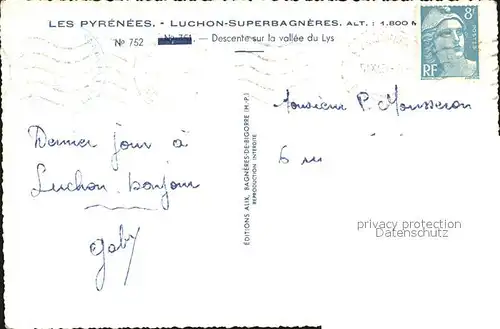 LES PYRÉNÉES. - LUCHON-SUPERBAGNÈRES. ALT. : 1.800 M
8F
POSTES
RF
Nº 752 Nº 751. - Descente sur la vallée du Lys
Monsieur P. Mousseron
6 rue
Dernier jour à
Luchon. bonjour
Gaby
ÉDITIONS ALIX, BAGNÈRES-DE-BIGORRE (H.-P.)
REPRODUCTION INTERDITE
privacy protection
Datenschutz